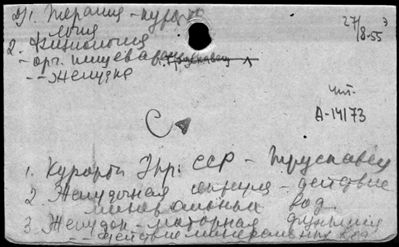 1. Терапия - курорто
логия
2. Физиология
- орг. пищевар
-- желудка
27/8-55
Э
Трускавец
чит.
А-14173
С
1. Курорты Укр. ССР - Трускавец
2. Желудочная секреция - действие
минеральных вод.
3. Желудок - моторная функция
-- действие минеральных вод